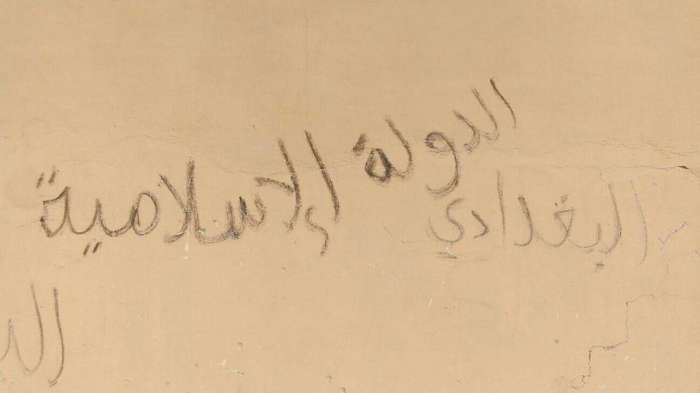 الدولة الإسلامية
البغدادي